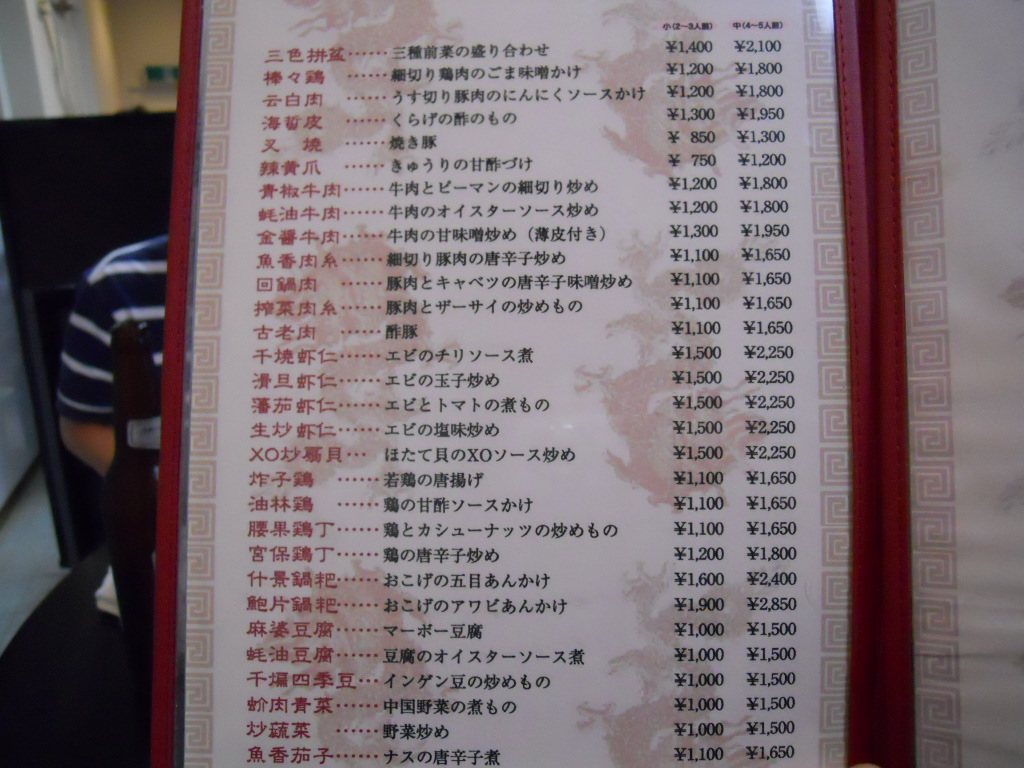 小(2〜3人前) 中(4〜5人前)
三色拼盆……三種前菜の盛り合わせ ¥1,400 ¥2,100
棒々鶏……細切り鶏肉のごま味噌かけ ¥1,200 ¥1,800
云白肉……うす切り豚肉のにんにくソースかけ ¥1,200 ¥1,800
海哲皮……くらげの酢のもの ¥1,300 ¥1,950
叉焼……焼き豚 ¥850 ¥1,300
辣黄爪……きゅうりの甘酢づけ ¥750 ¥1,200
青椒牛肉……牛肉とピーマンの細切り炒め ¥1,200 ¥1,800
蚝油牛肉……牛肉のオイスターソース炒め ¥1,200 ¥1,800
金醤牛肉……牛肉の甘味噌炒め（薄皮付き） ¥1,300 ¥1,950
魚香肉糸……細切り豚肉の唐辛子炒め ¥1,100 ¥1,650
回鍋肉……豚肉とキャベツの唐辛子味噌炒め ¥1,100 ¥1,650
搾菜肉糸……豚肉とザーサイの炒めもの ¥1,100 ¥1,650
古老肉……酢豚 ¥1,100 ¥1,650
干焼蝦仁……エビのチリソース煮 ¥1,500 ¥2,250
滑旦蝦仁……エビの玉子炒め ¥1,500 ¥2,250
蕃茄蝦仁……エビとトマトの煮もの ¥1,500 ¥2,250
生炒蝦仁……エビの塩味炒め ¥1,500 ¥2,250
XO炒扇貝…ほたて貝のXOソース炒め ¥1,500 ¥2,250
炸子鶏……若鶏の唐揚げ ¥1,100 ¥1,650
油林鶏……鶏の甘酢ソースかけ ¥1,100 ¥1,650
腰果鶏丁……鶏とカシューナッツの炒めもの ¥1,100 ¥1,650
宮保鶏丁……鶏の唐辛子炒め ¥1,200 ¥1,800
什景鍋粑……おこげの五目あんかけ ¥1,600 ¥2,400
鮑片鍋粑……おこげのアワビあんかけ ¥1,900 ¥2,850
麻婆豆腐……マーボー豆腐 ¥1,000 ¥1,500
蚝油豆腐……豆腐のオイスターソース煮 ¥1,000 ¥1,500
干煸四季豆…インゲン豆の炒めもの ¥1,000 ¥1,500
蚧肉青菜……中国野菜の煮もの ¥1,000 ¥1,500
炒蔬菜……野菜炒め ¥1,000 ¥1,500
魚香茄子……ナスの唐辛子煮 ¥1,100 ¥1,650